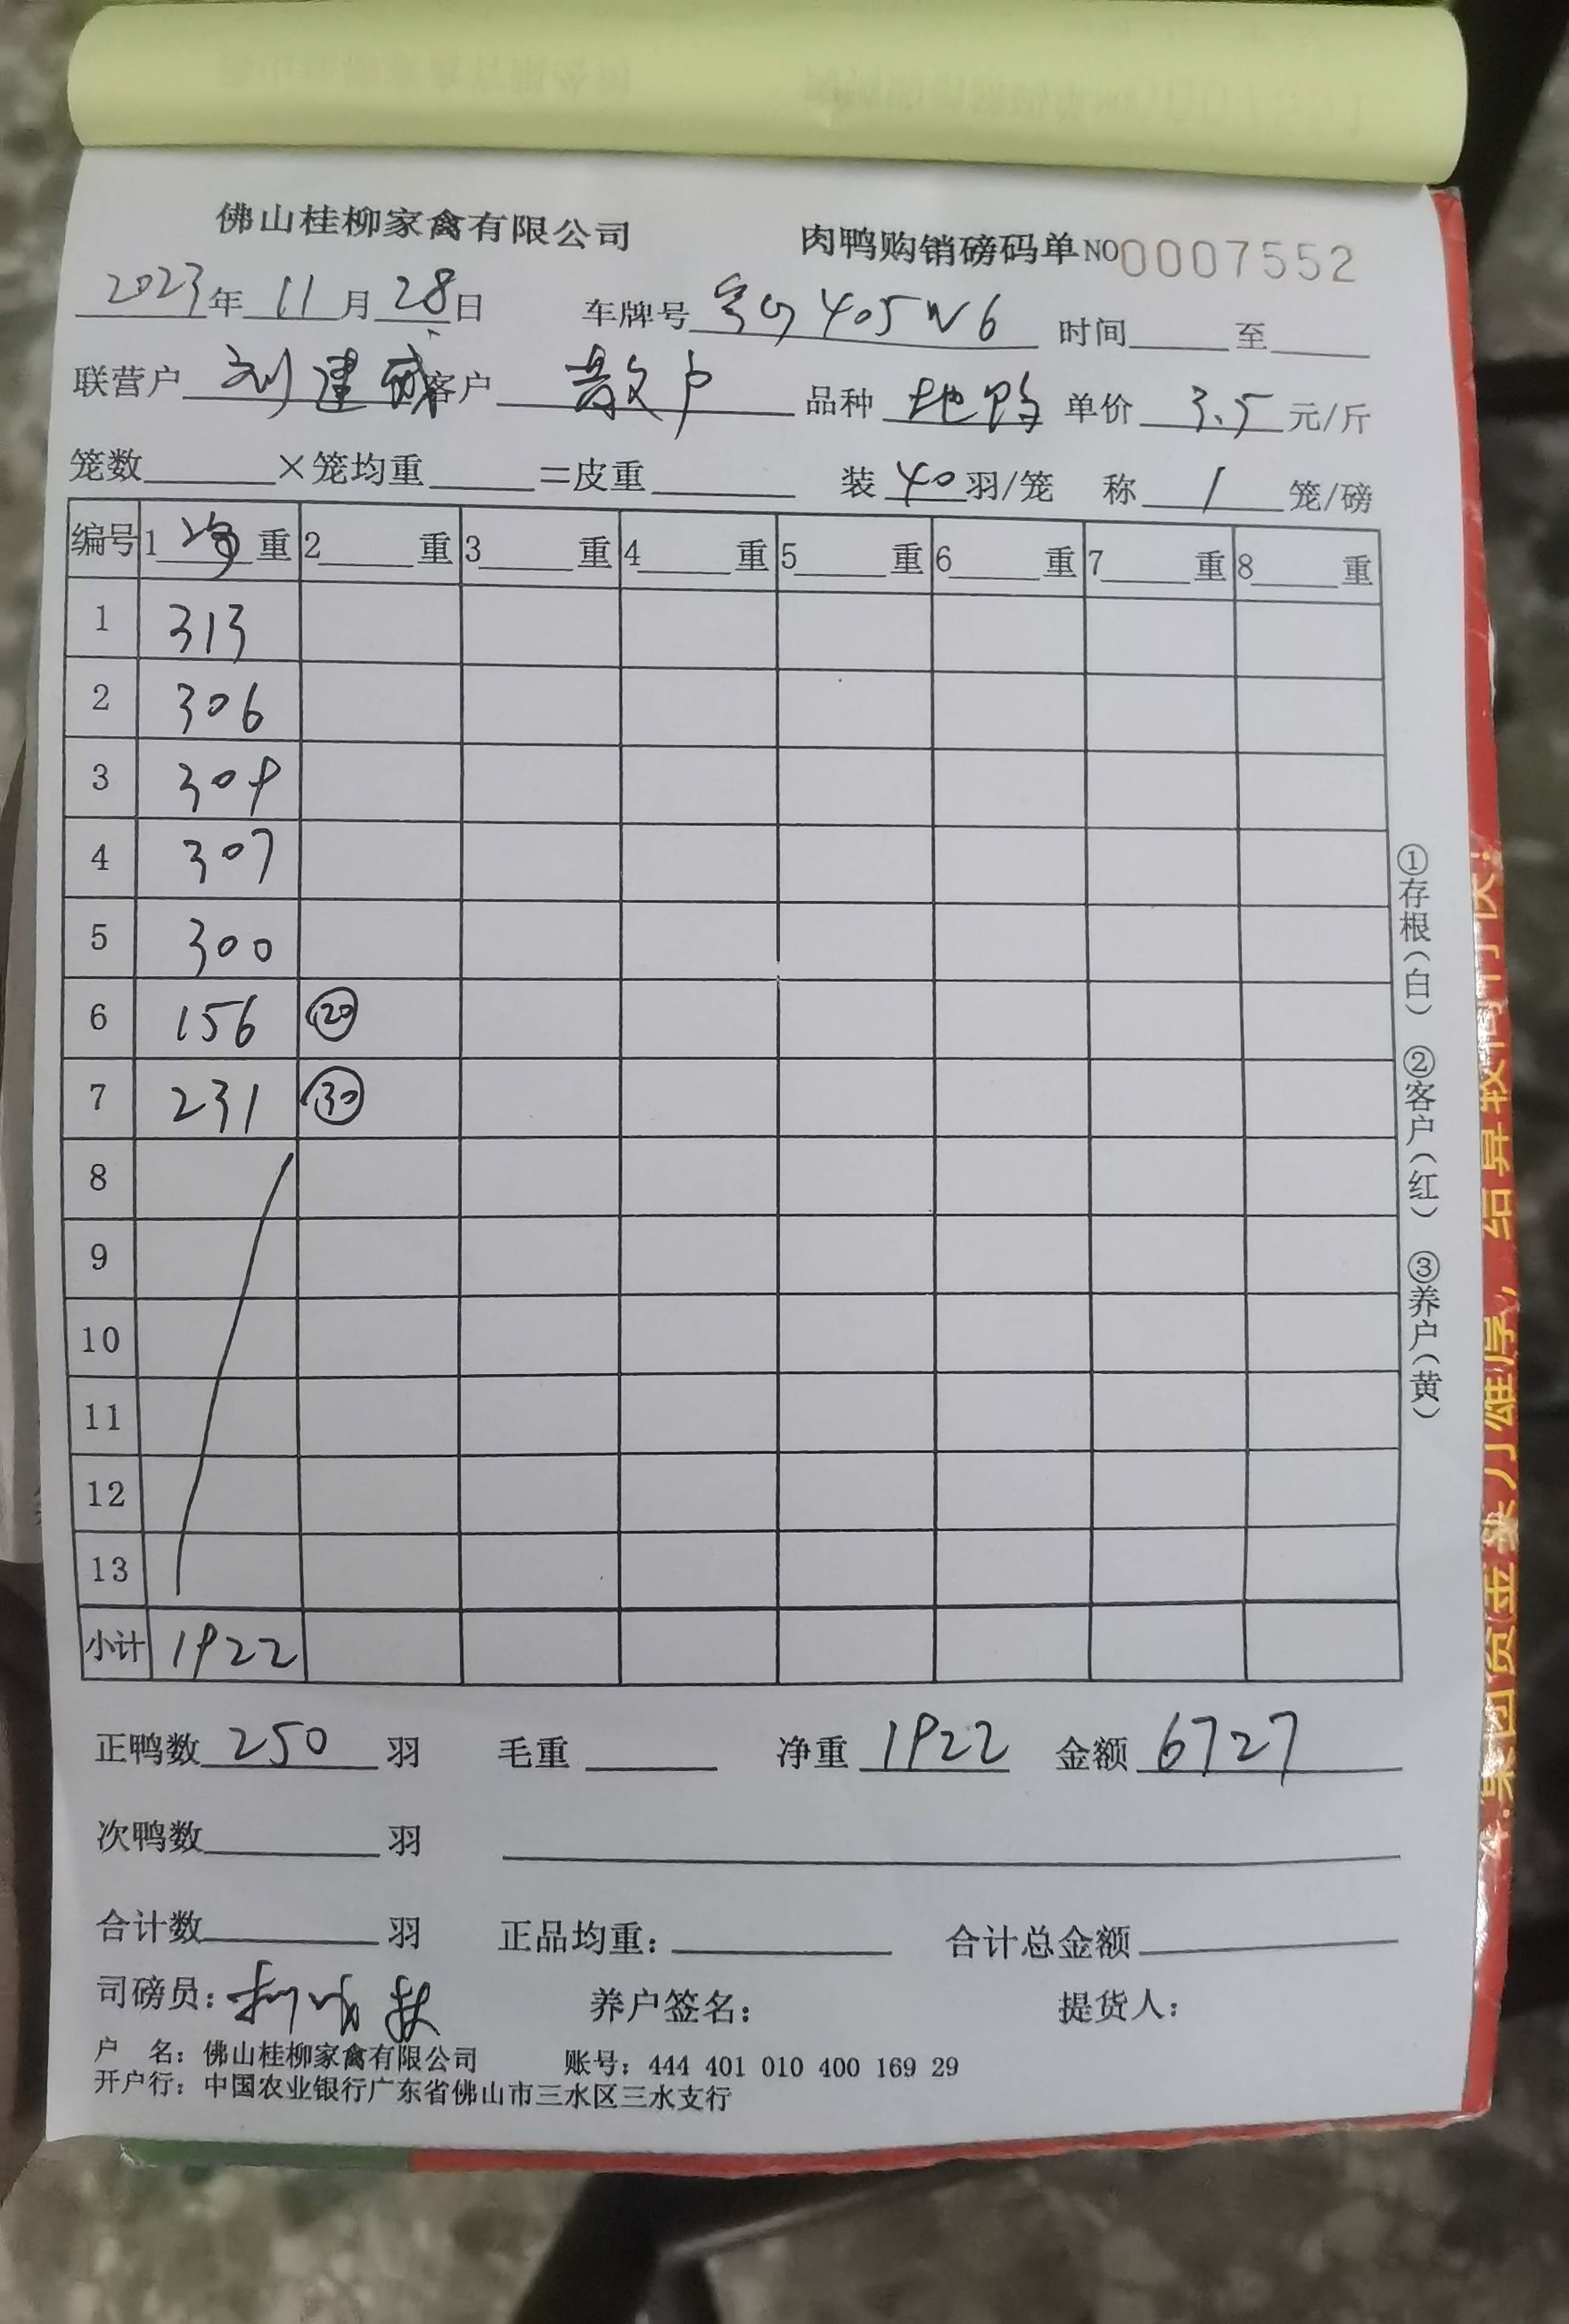 佛山桂柳家禽有限公司 肉鸭购销磅码单 NO 0007552
2023年 11月 28日 车牌号 405W6 时间 至
联营户 刘建成 客户 散户 品种 地鸭 单价 3.5 元/斤
笼数 ×笼均重 =皮重 装 40 羽/笼 称 1 笼/磅
编号 1 净 重 2 重 3 重 4 重 5 重 6 重 7 重 8 重
1 313
2 306
3 309
4 307
5 300
6 156 20
7 231 30
8
9
10
11
12
13
小计 1922
正鸭数 250 羽 毛重 净重 1922 金额 6727
次鸭数 羽
合计数 羽 正品均重: 合计总金额
司磅员: 养户签名: 提货人:
户 名: 佛山桂柳家禽有限公司 账号: 444 401 010 400 169 29
开户行: 中国农业银行广东省佛山市三水区三水支行
①存根(白) ②客户(红) ③养户(黄)